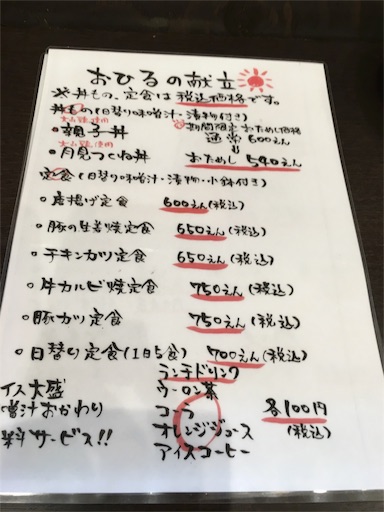 おひるの献立
※丼もの、定食は税込価格です。
丼もの(日替り味噌汁・漬物付き)
大山鶏使用
・親子丼
期間限定おためし価格
通常600えん
大山鶏使用
・月見つくね丼 おためし540えん
定食(日替り味噌汁・漬物・小鉢付き)
○唐揚げ定食 600えん(税込)
○豚の生姜焼定食 650えん(税込)
○チキンカツ定食 650えん(税込)
○牛カルビ焼定食 750えん(税込)
○豚カツ定食 750えん(税込)
○日替り定食(1日5食) 700えん(税込)
ランチドリンク
イス大盛 ウーロン茶
噌汁おかわり コーラ 各100円
料サービス!! オレンジジュース (税込)
アイスコーヒー